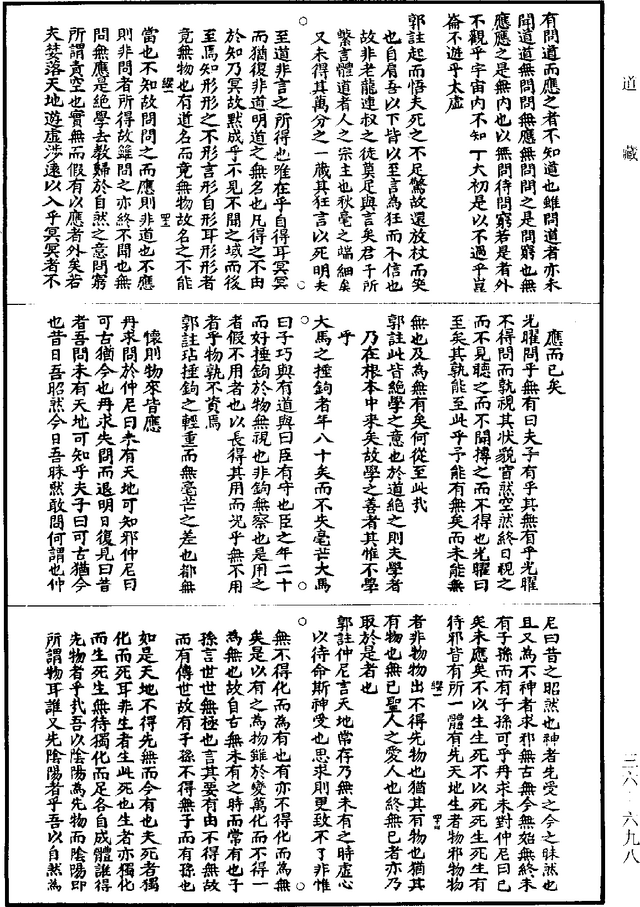 道藏
有問道而應之者不知道也雖問道者亦未
聞道道無問問無應無問問之是問窮也無
應應之是無內也以無問待問窮若是者外
不觀乎宇宙內不知丁大初是以不過乎崑
崙不遊乎太虛
郭註起而悟夫死之不足驚故還放杖而笑
也自肩吾以下皆以至言為狂而不信也
故非老龍連叔之徒莫足與言矣君子所
繫言體道者人之宗主也秋毫之端細矣
又未得其萬分之一藏其狂言以死明夫
至道非言之所得也唯在乎自得耳冥冥
而猶復非道明道之無名也凡得之不由
於知乃冥故默成乎不見不聞之域而後
至焉知形形之不形言形自形耳形形者
竟無物也有道名而竟無物故名之不能
當也不知故問問之而應則非道也不應
則非問者所得故雖問之亦終不聞也無
問無應是絕學去教歸於自然之意問窮
所謂責空也實無而假有以應者外矣若
夫婪落天地遊虛涉遠以入乎冥冥者不
應而已矣
光曜問乎無有曰夫子有乎其無有乎光曜
不得問而孰視其狀貌窅然空然終日視之
而不見聽之而不聞摶之而不得也光曜曰
至矣其孰能至此乎予能有無矣而未能無
無也及為無有矣何從至此哉
郭註此皆絕學之意也於道絕之則夫學者
乃在根本中來矣故學之善者其惟不學
乎
大馬之捶鉤者年八十矣而不失毫芒大馬
曰子巧與有道與曰臣有守也臣之年二十
而好捶鉤於物無視也非鉤無察也是用之
者假不用者也以長得其用而況乎無不用
者乎物孰不資焉
郭註玷捶鉤之輕重而無毫芒之差也都無
懷則物來皆應
冉求問於仲尼曰未有天地可知邪仲尼曰
可古猶今也冉求失問而退明日復見曰昔
者吾問未有天地可知乎夫子曰可古猶今
也昔日吾昭然今日吾昧然敢問何謂也仲
尼曰昔之昭然也神者先受之今之昧然也
且又為不神者求邪無古無今無始無終未
有子孫而有子孫可乎冉求未對仲尼曰已
矣未應矣不以生生死不以死死生死生有
待邪皆有所一體有先天地生者物邪物物
者非物物出不得先物也猶其有物也猶其
有物也無已聖人之愛人也終無已者亦乃
取於是者也
郭註仲尼言天地常存乃無未有之時虛心
以待命斯神受也思求則更致不了非惟
無不得化而為有也有亦不得化而為無
矣是以有之為物雖於變萬化而不得一
為無也故自古無未有之時而常有也子
孫言世世無極也言其要有由不得無故
而有傳世故有子孫不得無子而有孫也
如是天地不得先無而今有也夫死者獨
化而死耳非生者生此死也生者亦獨化
而生死生無待獨化而足各自成體誰得
先物者乎哉吾以陰陽為先物而陰陽即
所謂物耳誰又先陰陽者乎吾以自然為
三六—六九八